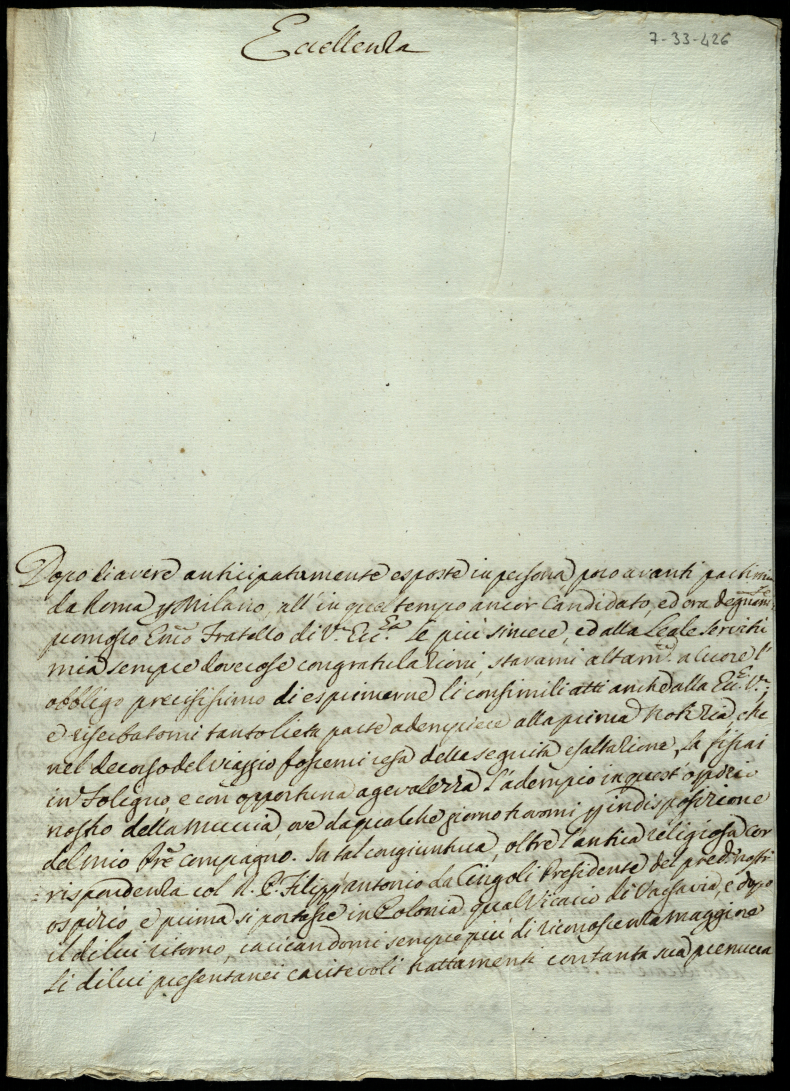 Eccellenza
7-33-426
Dopo di avere anticipatamente esposte in persona poco avanti partirmi
da Roma p Milano, all' in quel tempo ancor Candidato, ed ora degnam:
pmosso Emo Fratello di V. Ecc.za le più sincere, ed alla Leale servitù
mia sempre doverose congratulazioni, stavami altam. a Cuore l'
obbligo precisissimo di esprimerne li consimili atti anche alla Ecc. V.
e riserbatomi tanto lieta parte adempiere alla prima Notizia, che
nel decorso del viaggio fossemi resa della seguita esaltazione, la fissai
in Foligno, e con opportuna agevolezza l'adempio in quest' ospizio
nostro della Muccia, ove da qualche giorno trovomi p indisposizione
del mio Pre compagno. In tal congiuntura, oltre l'antica religiosa cor
rispondenza col R. P. Filippantonio da Cingoli Presidente del pred. nostro
ospizio e prima si portasse in Polonia qual Vicario di Varsavia, e dopo
il di lui ritorno, caricandomi sempre più di riconoscenza maggiore
li di lui presentanei caritevoli trattamenti con tanta sua premura